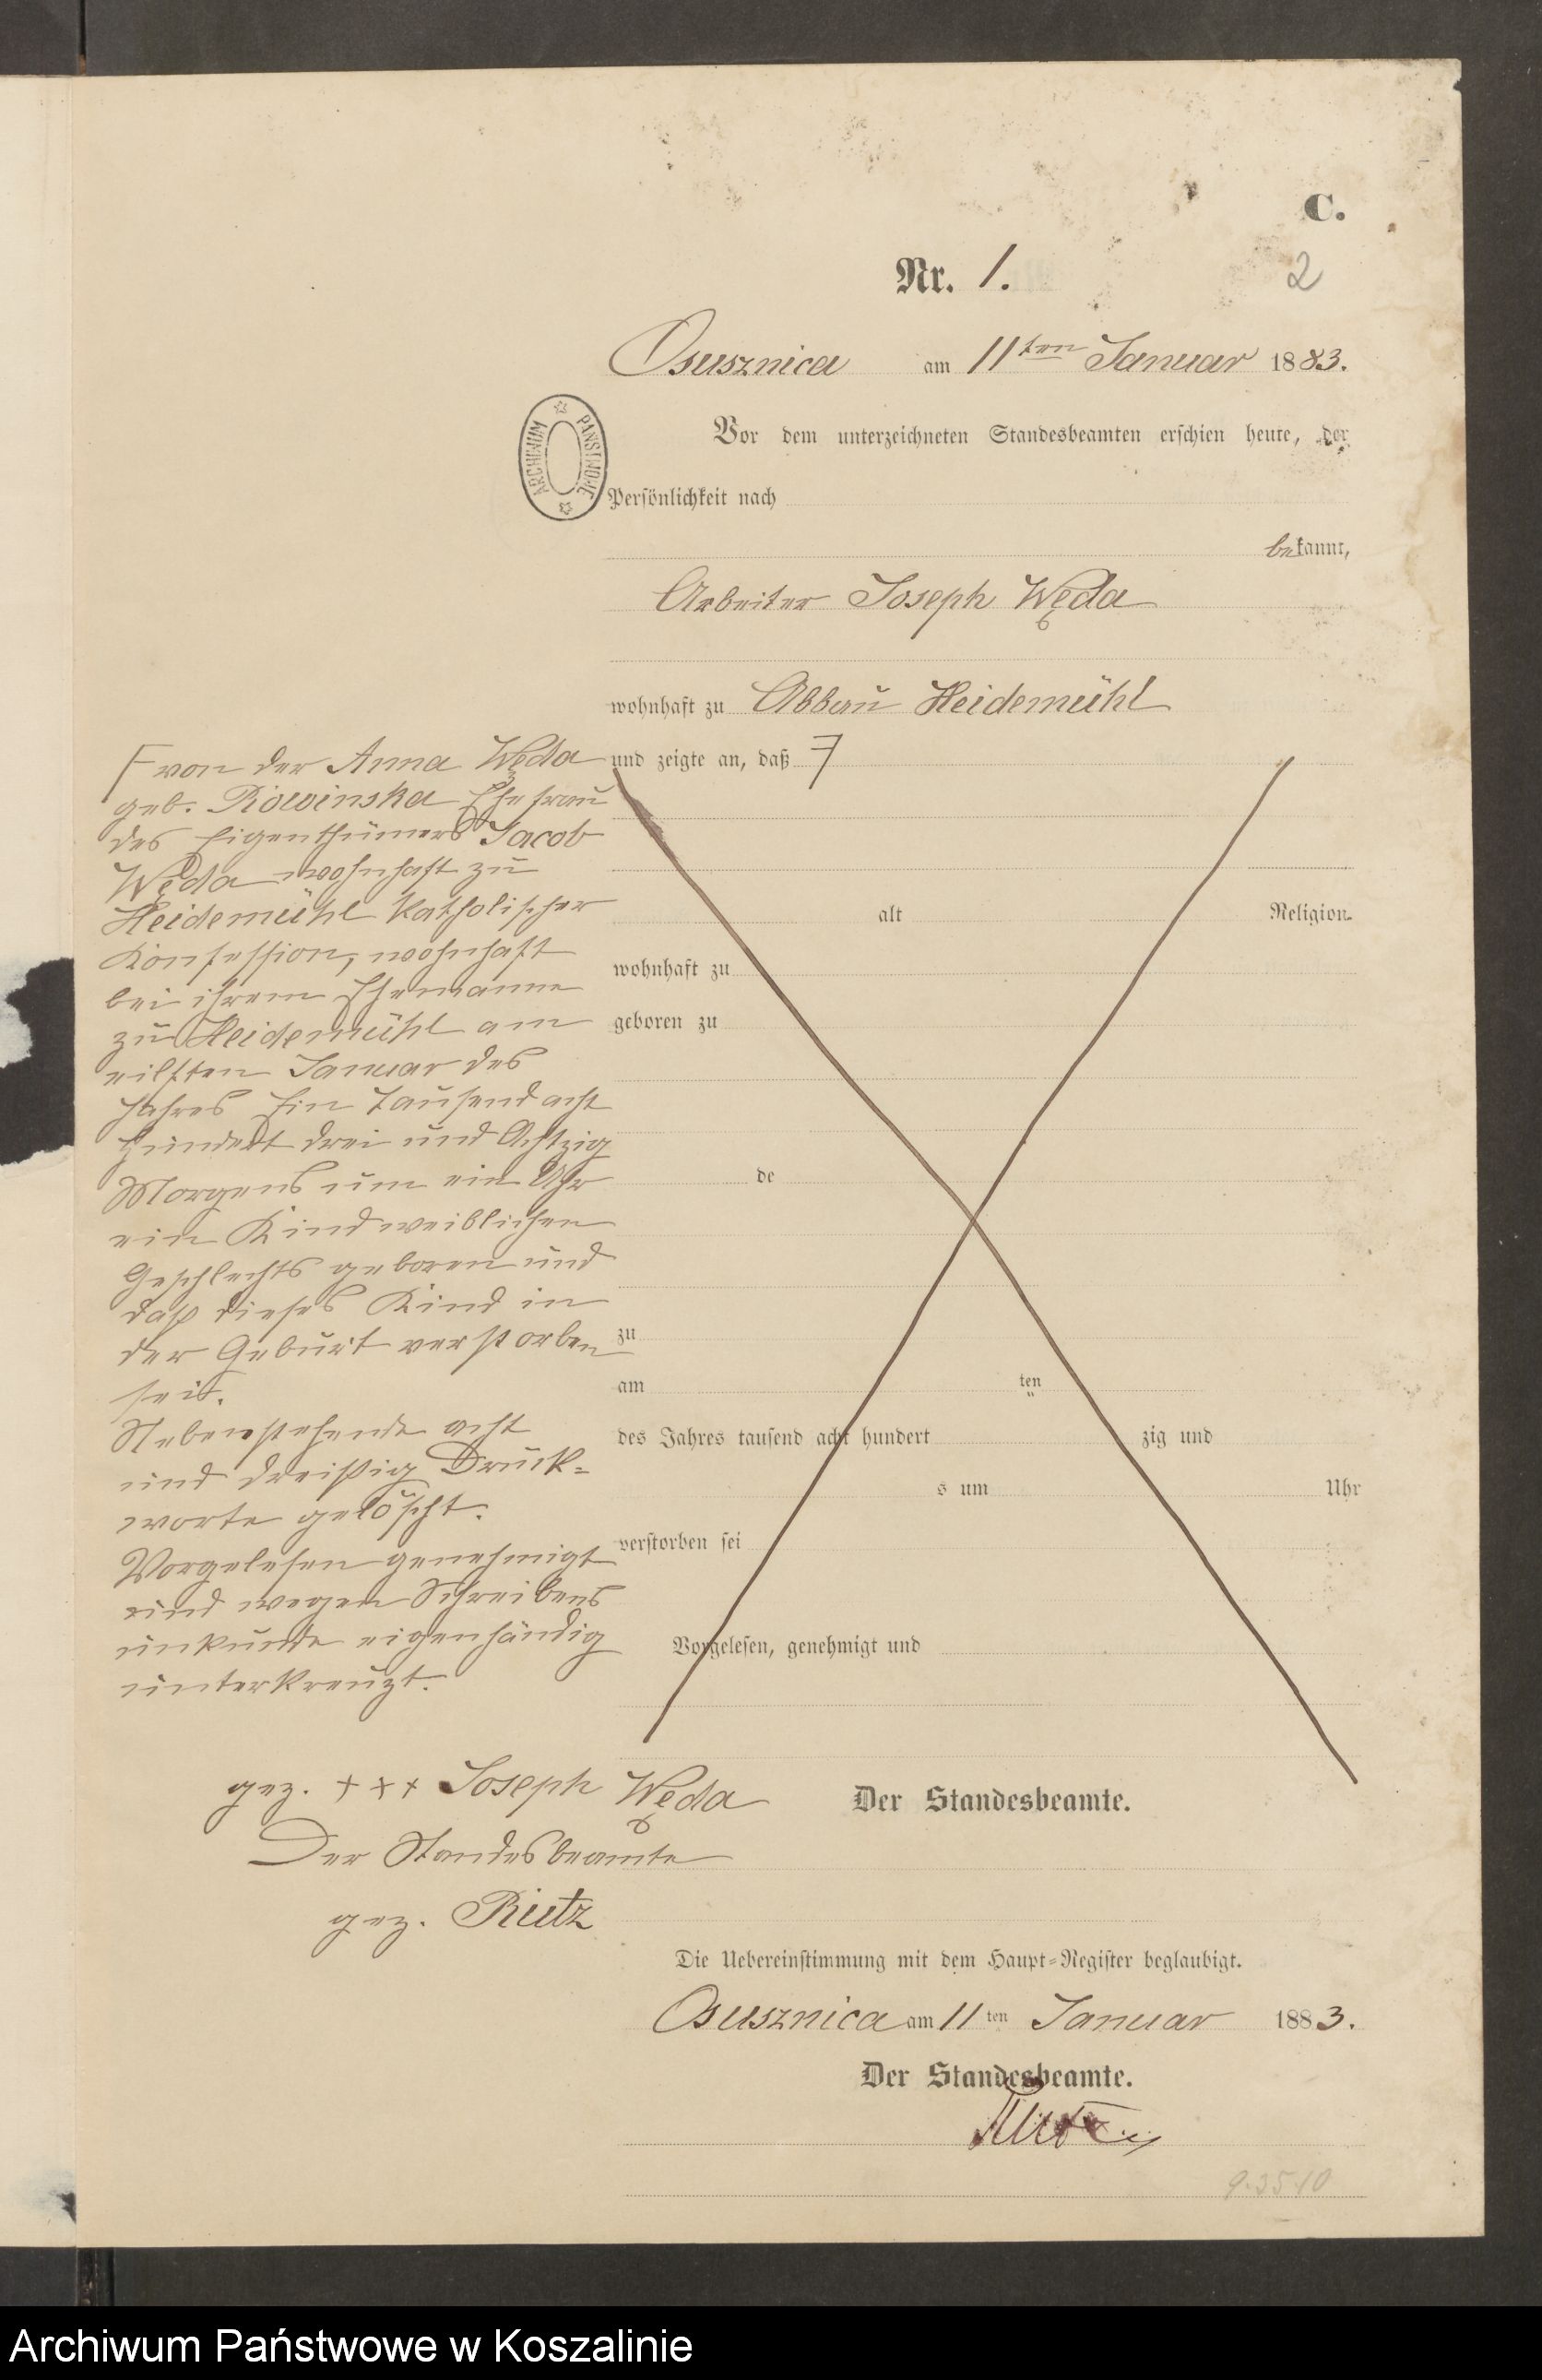 C.
Nr. 1.
2
Osusznica am 11ten Januar 1883.
Vor dem unterzeichneten Standesbeamten erschien heute, der
ARCHIWUM PAŃSTWOWE
Persönlichkeit nach
bekannt,
Arbeiter Joseph Węda
wohnhaft zu Abbau Heidemühl
und zeigte an, daß F
F von der Anna Węda
geb. Rowinska Ehefrau
des Eigenthümers Jacob
Węda wohnhaft zu
Heidemühl katholischer
Konfession, wohnhaft
bei ihrem Ehemanne
zu Heidemühl am
eilften Januar des
Jahres Ein tausend acht
hundert drei und Achtzig
Morgens um ein Uhr
ein Kind weiblichen
Geschlechts geboren und
daß dieses Kind in
der Geburt verstorben
sei.
Nebenstehende acht
und dreißig Druck=
worte gelöscht.
Vorgelesen genehmigt
und wegen Schreibens
unkunde eigenhändig
unterkreuzt.
alt Religion
wohnhaft zu
geboren zu
de
zu
am ten
des Jahres tausend acht hundert zig und
s um Uhr
verstorben sei
Vorgelesen, genehmigt und
gez. +++ Joseph Węda
Der Standesbeamte.
Der Standesbeamte
gez. Rutz
Die Uebereinstimmung mit dem Haupt=Register beglaubigt.
Osusznica am 11ten Januar 1883.
Der Standesbeamte.
Rutz
Archiwum Państwowe w Koszalinie